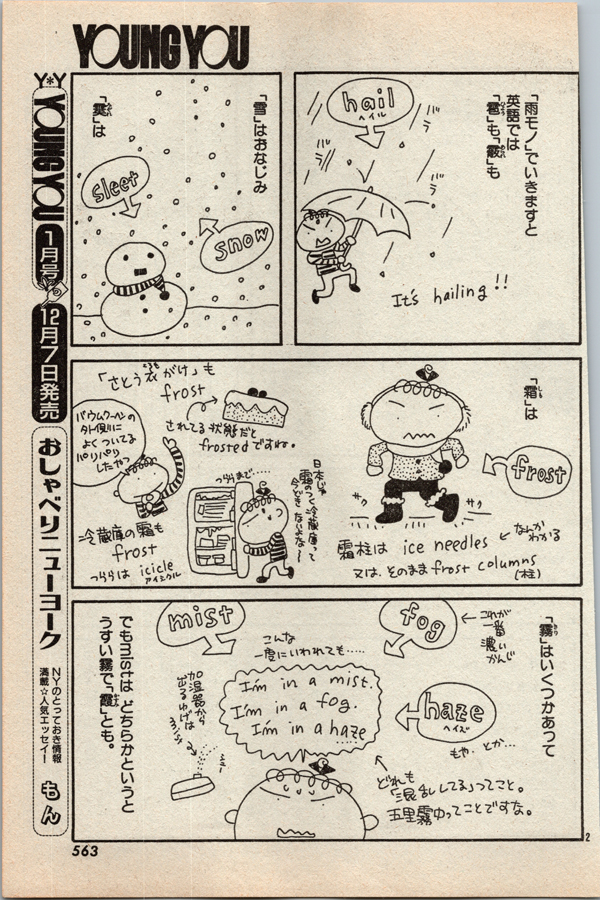 YOUNG YOU
「雨モノ」でいきますと
英語では
「雹」も「霰」も
ひょう
hail
ヘイル
バラ
バラ
バラ
It's hailing!!
「雪」はおなじみ
「霙」は
sleet
snow
「霜」は
しも
frost
サク
サク
霜柱は ice needles
なんか
わかる
又は、そのまま frost columns
(柱)
「さとう衣がけ」も
frost
されてる状態だと
frostedですね。
バウムクーヘンの
外側に
よくついてる
パリパリ
したやつ
つららまで……
日本じゃ
霜のつく冷蔵庫って
今どき
ないよな〜
冷蔵庫の霜も
frost
つららは icicle
アイシクル
「霧」はいくつかあって
きり
fog
これが
一番
濃い
かんじ
mist
haze
ヘイズ
もや、とか…
こんな
一度にいわれても……
I'm in a mist.
I'm in a fog.
I'm in a haze
どれも
「混乱してる」ってこと。
五里霧中ってことですな。
加湿器から
出るゆげは
シュー
でもmistは どちらかというと
うすい霧で「霞」とも。
Y*Y YOUNG YOU 1月号 12月7日発売
おしゃべりニューヨーク
NYのとっておき情報
満載☆人気エッセイ!
もん
563
2